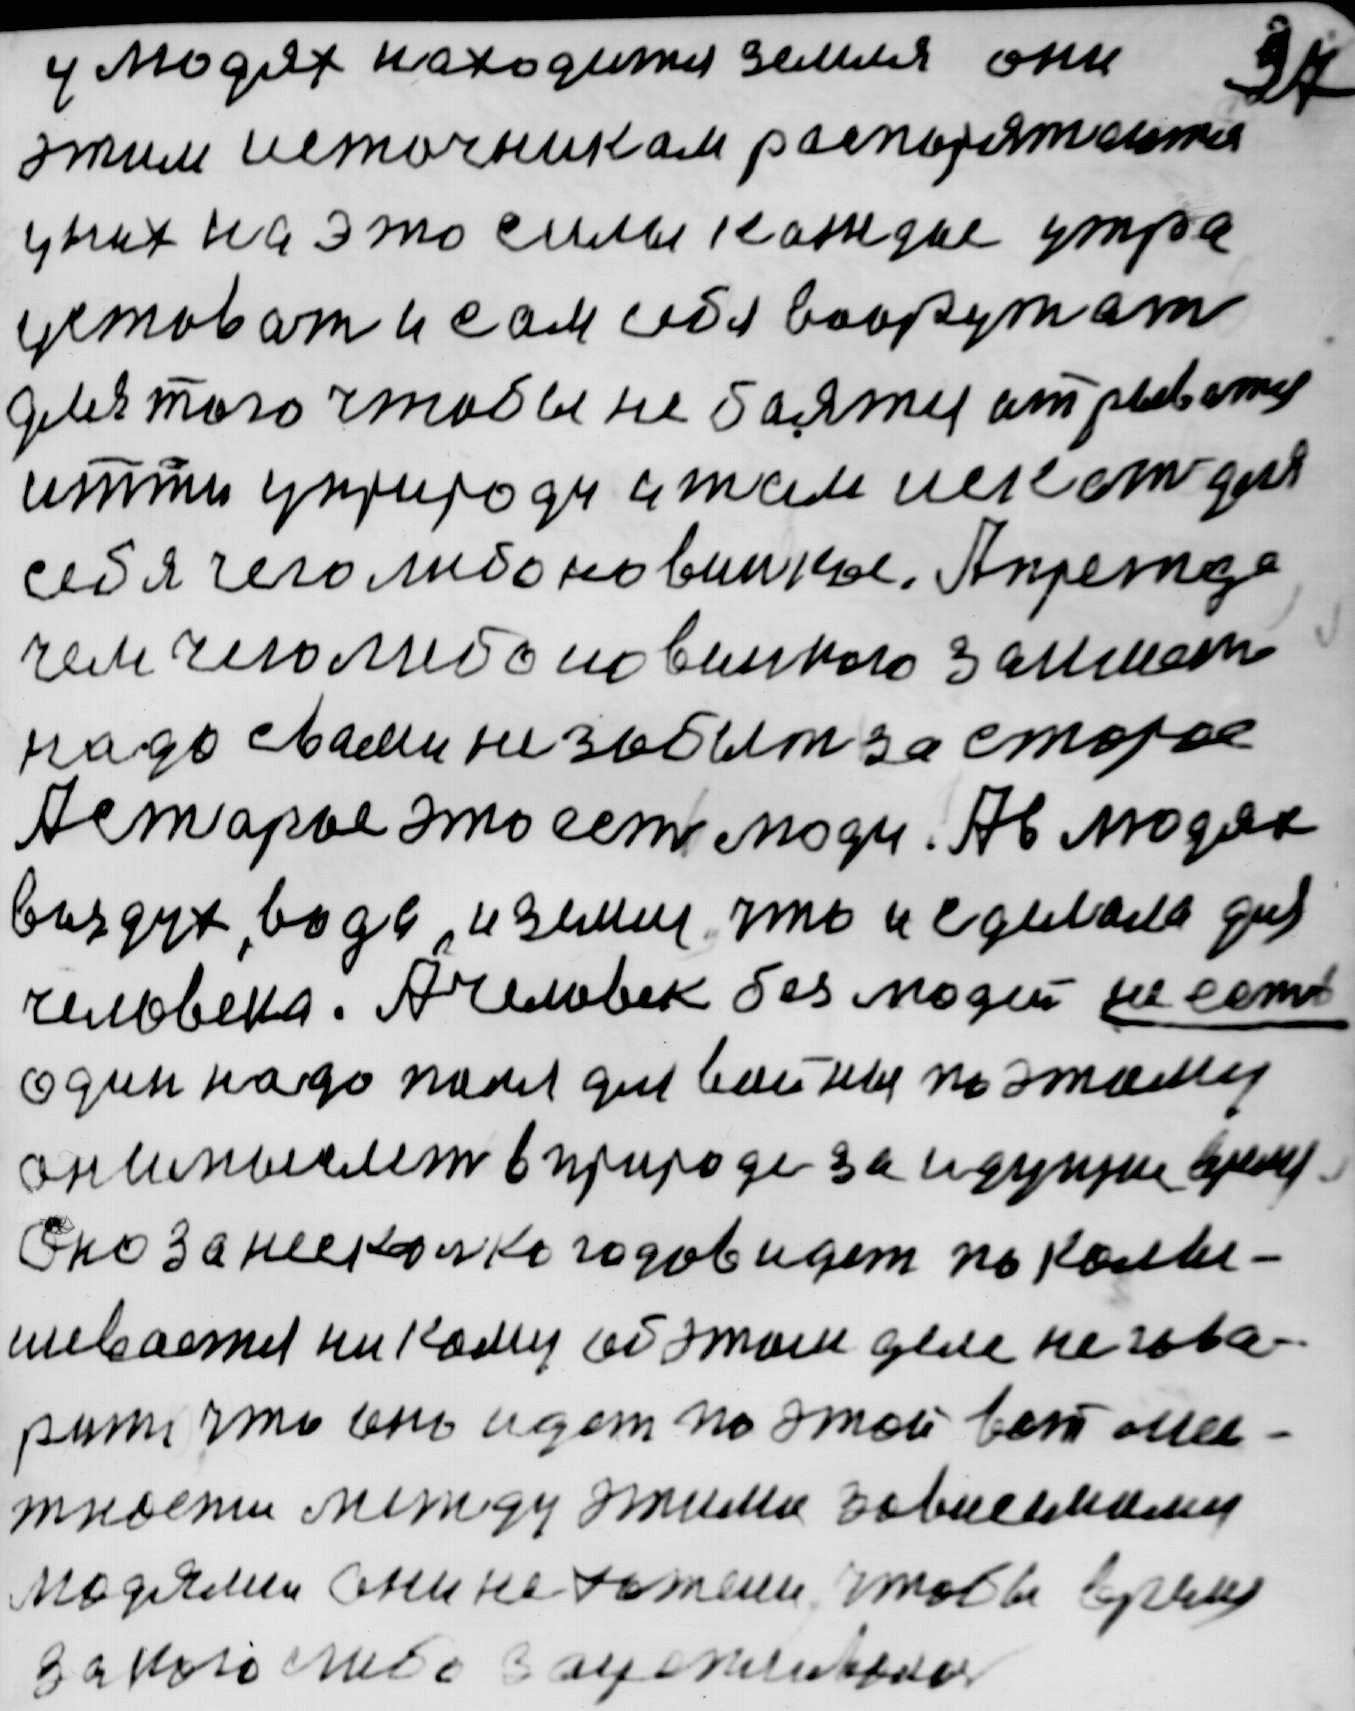 у людях находится земля они 37
этим источникам распорятаются
уних на это силы каждые утра
устават и сам себя вооружат
для того чтобы не баятся от рыватся
итти уприроду итам искат для
себя чего либо новинкые. Апрежде
чем чего либо новинкого занимат
надо свами не забыт за старое
Астарые это ест люди. Ав людях
Воздух, вода, и земля, что и сделала для
человека. Ачеловек без людей не есть
один надо поля для войны по этаму
они мыслет вприроде за идущие время
Оно за несколко годов идет по колы-
шевается ни кому об этом деле не гова-
рит, что оно идет по этой вот
тности между этими зависимами
людями они не хотели, чтобы время
за кого либо зацепливалася